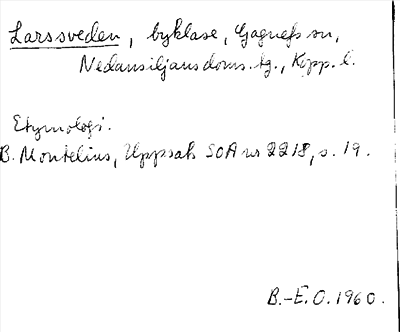 Larssveden, byklase, Gagnefs sn,
Nedansiljans doms.tg., Kopp. l.
Etymologi.
B. Montelius, Uppsats SOA nr 2218, s. 19.
B.-E.O. 1960.